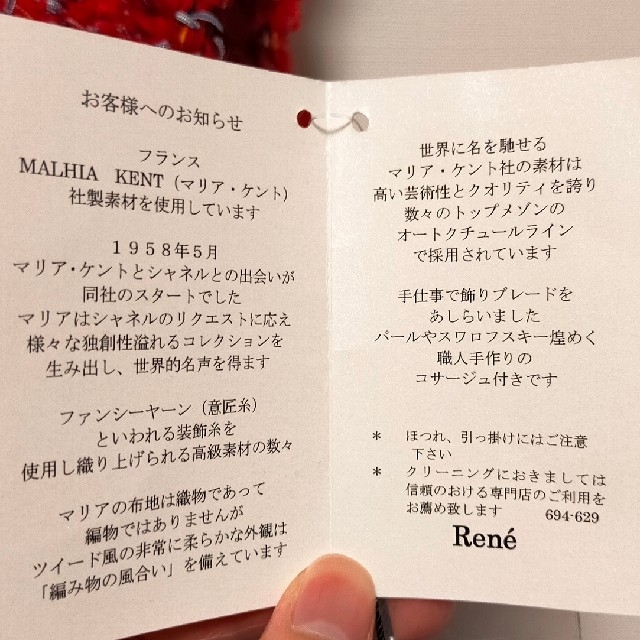 お客様へのお知らせ
フランス
MALHIA KENT（マリア・ケント）
社製素材を使用しています
１９５８年５月
マリア・ケントとシャネルとの出会いが
同社のスタートでした
マリアはシャネルのリクエストに応え
様々な独創性溢れるコレクションを
生み出し、世界的名声を得ます
ファンシーヤーン（意匠糸）
といわれる装飾糸を
使用し織り上げられる高級素材の数々
マリアの布地は織物であって
編物ではありませんが
ツイード風の非常に柔らかな外観は
「編み物の風合い」を備えています
世界に名を馳せる
マリア・ケント社の素材は
高い芸術性とクオリティを誇り
数々のトップメゾンの
オートクチュールライン
で採用されています
手仕事で飾りブレードを
あしらいました
パールやスワロフスキー煌めく
職人手作りの
コサージュ付きです
＊ ほつれ、引っ掛けにはご注意
下さい
＊ クリーニングにおきましては
信頼のおける専門店のご利用を
お薦め致します 694-629
René